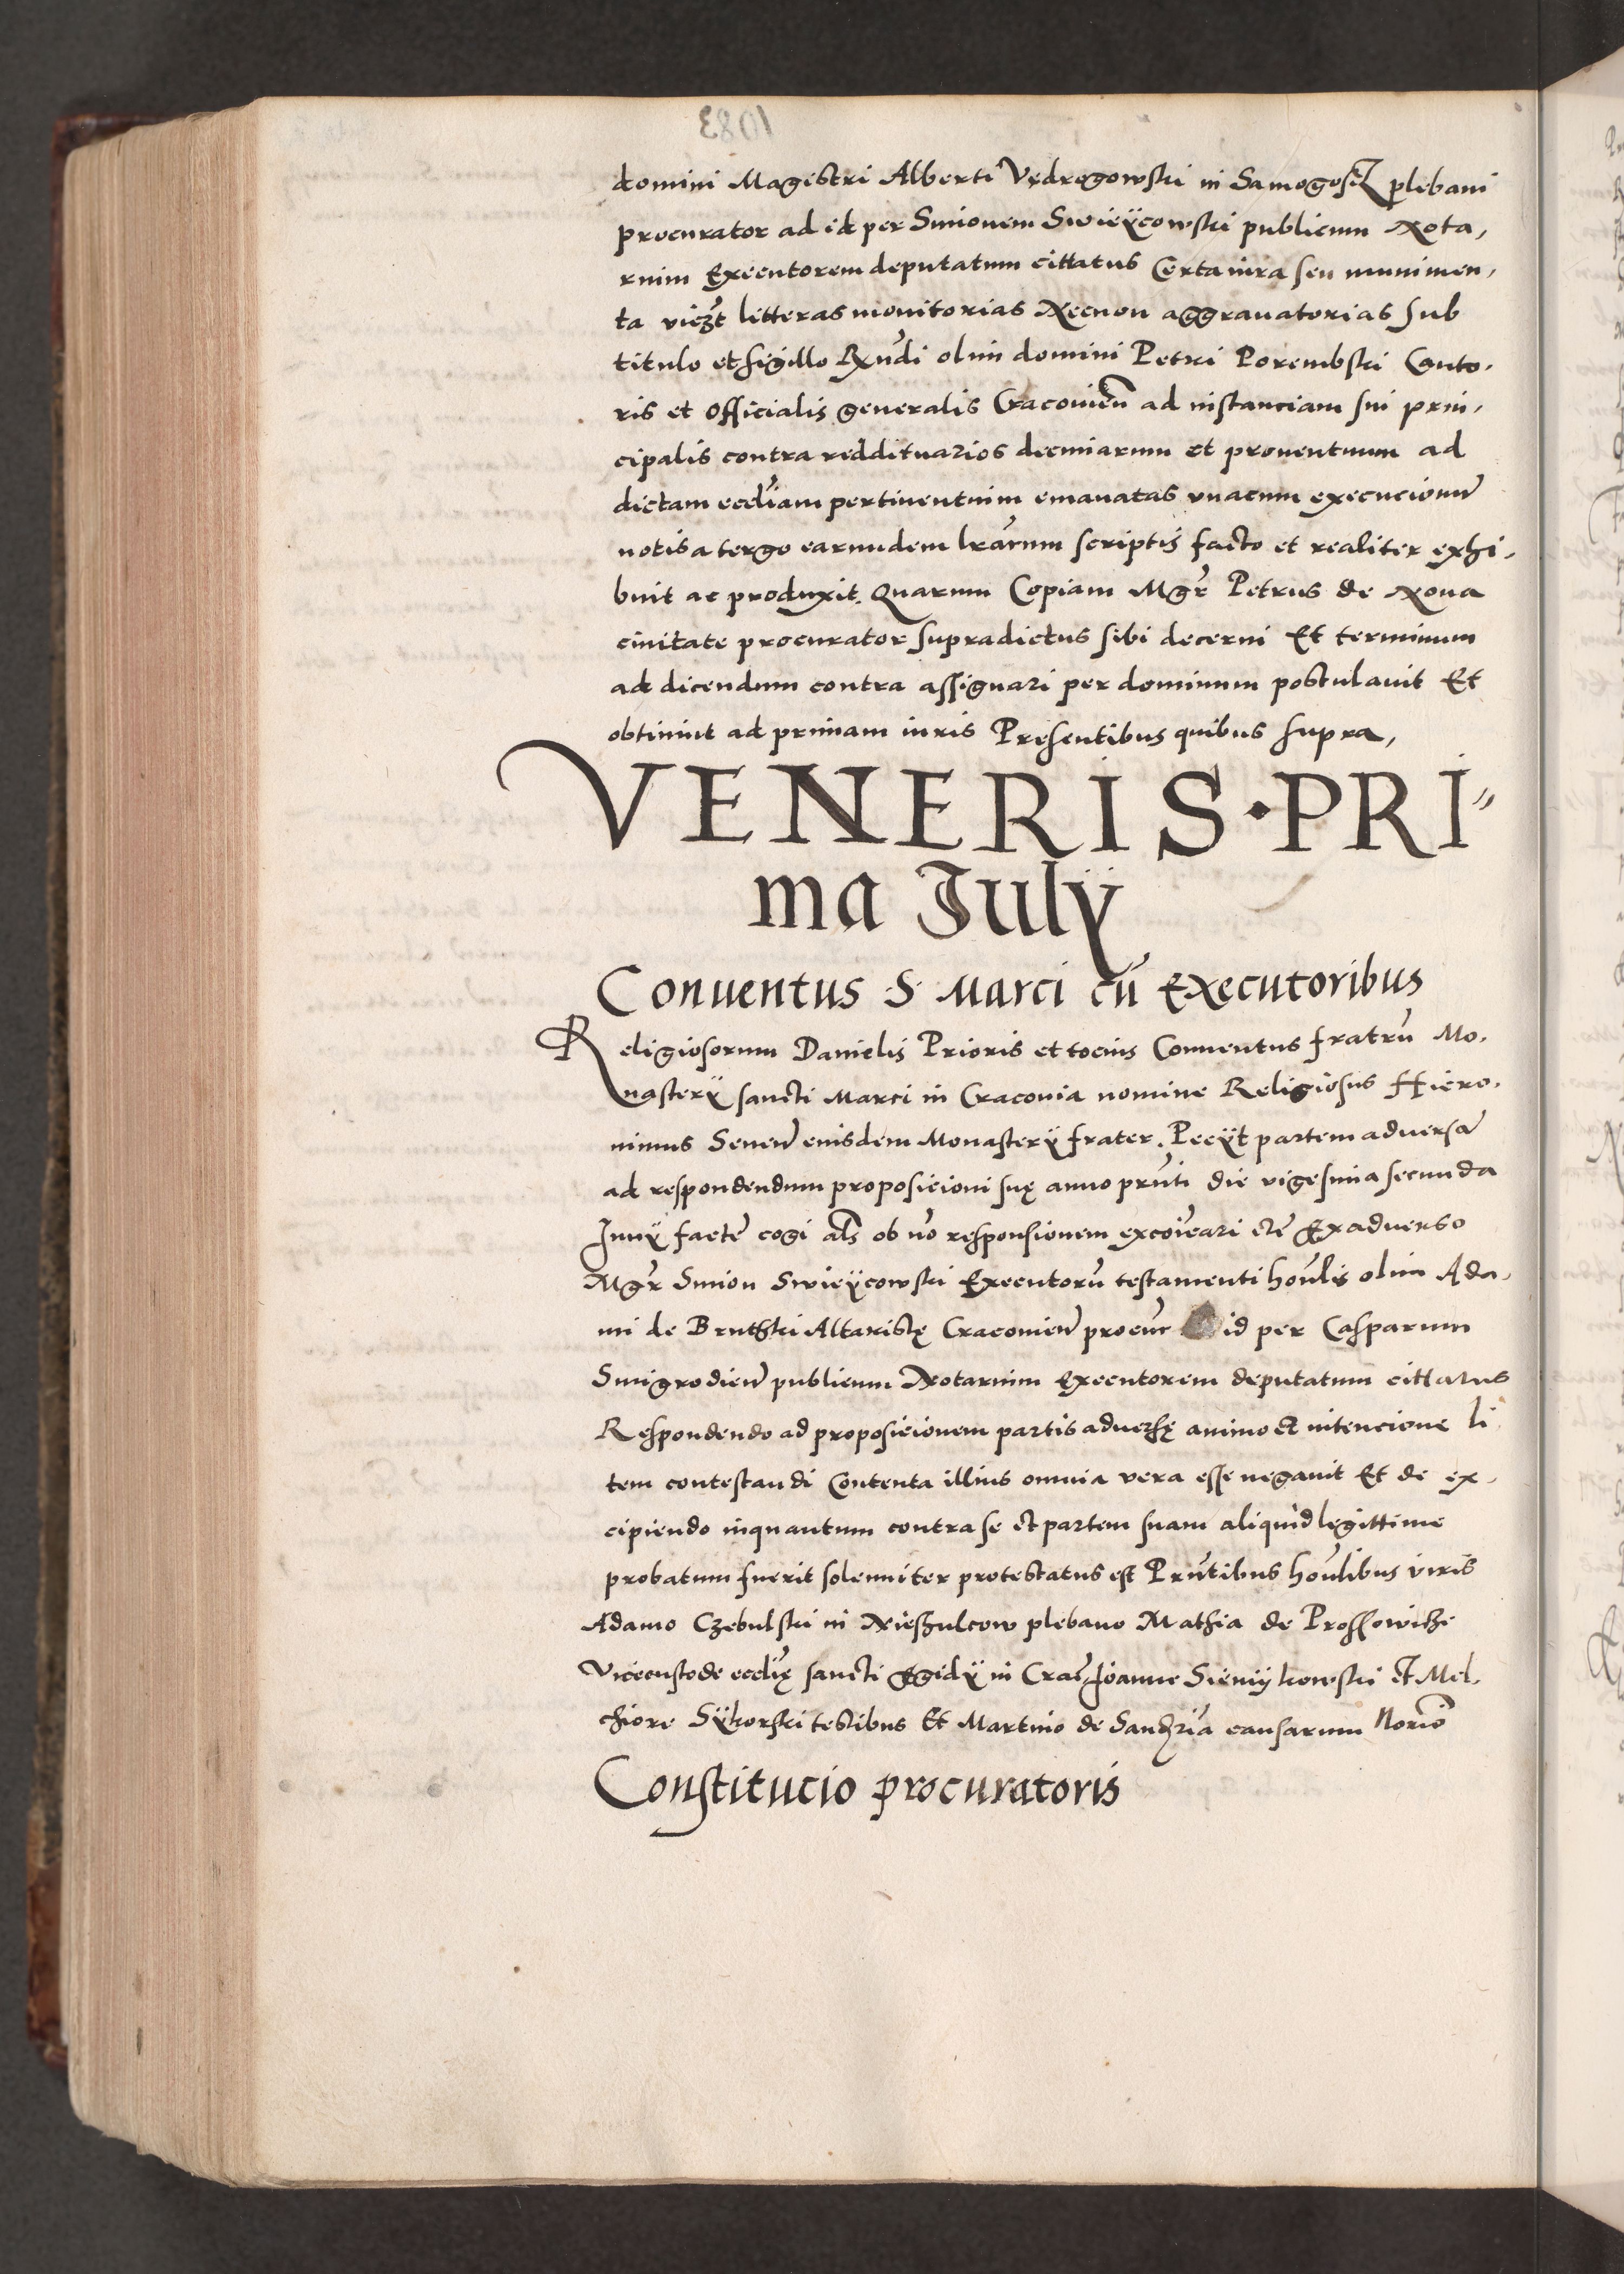 domini Magistri Alberti Vędrogowski in Samogosz plebani
procurator ad id per Simonem Swieÿcowski publicum Nota,
rium Executorem deputatum cittatus Certa iura seu munimen,
ta viczt litteras monitorias Necnon aggrauatorias sub
titulo et sigillo Rxndi olim domini Petri Porembski Canto,
ris et Officialis generalis Cracouien ad instanciam sui prin,
cipalis contra reddituarios decimarum et prouentuum ad
dictam eccliam pertinentium emanatas vnacum execucionum
notis a tergo earumdem lrarum scriptis facto et realiter exhi,
buit ac produxit. Quarum Copiam Mgr Petrus de Noua
ciuitate procurator supradictus sibi decerni Et terminum
ad dicendum contra assignari per dominum postulauit Et
obtinuit ad primam iuris Presentibus quibus supra,
VENERIS·PRI"
ma Julÿ
Conuentus ·S· Marci cū Executoribus
Religiosorum Danielis Prioris et tocius Conuentus fratrū Mo,
nasterÿ sancti Marci in Cracouia nomine Religiosus Hiero,
nimus Senen eiusdem Monasterÿ frater. Pecÿt partem aduersā
ad respondendum proposicioni suę anno prnti die vigesima secunda
Junÿ factę cogi als ob nō responsionem excoicari etc Ex aduerso
Mgr Simon Swieÿcowski Executorū testamenti honlis olim Ada,
mi de Bruthki Altaristę Cracouien procur id per Casparum
Smigrodien publicum Notarium Executorem deputatum cittatus
Respondendo ad proposicionem partis aduersę animo et intencione li
tem contestandi Contenta illius omnia vera esse negauit Et de ex,
cipiendo inquantum contra se et partem suam aliquid legittime
probatum fuerit solenniter protestatus est Prntibus honlibus viris
Adamo Czebulski in Nieszulcow plebano Mathia de Prossowiche
Vicecustode ecclię sancti Egidÿ in Crac Joanne Sieniÿkowski et Mel,
chiore Sÿkorski testibus Et Martino de Sandzria causarum Norio
Constitucio procuratoris